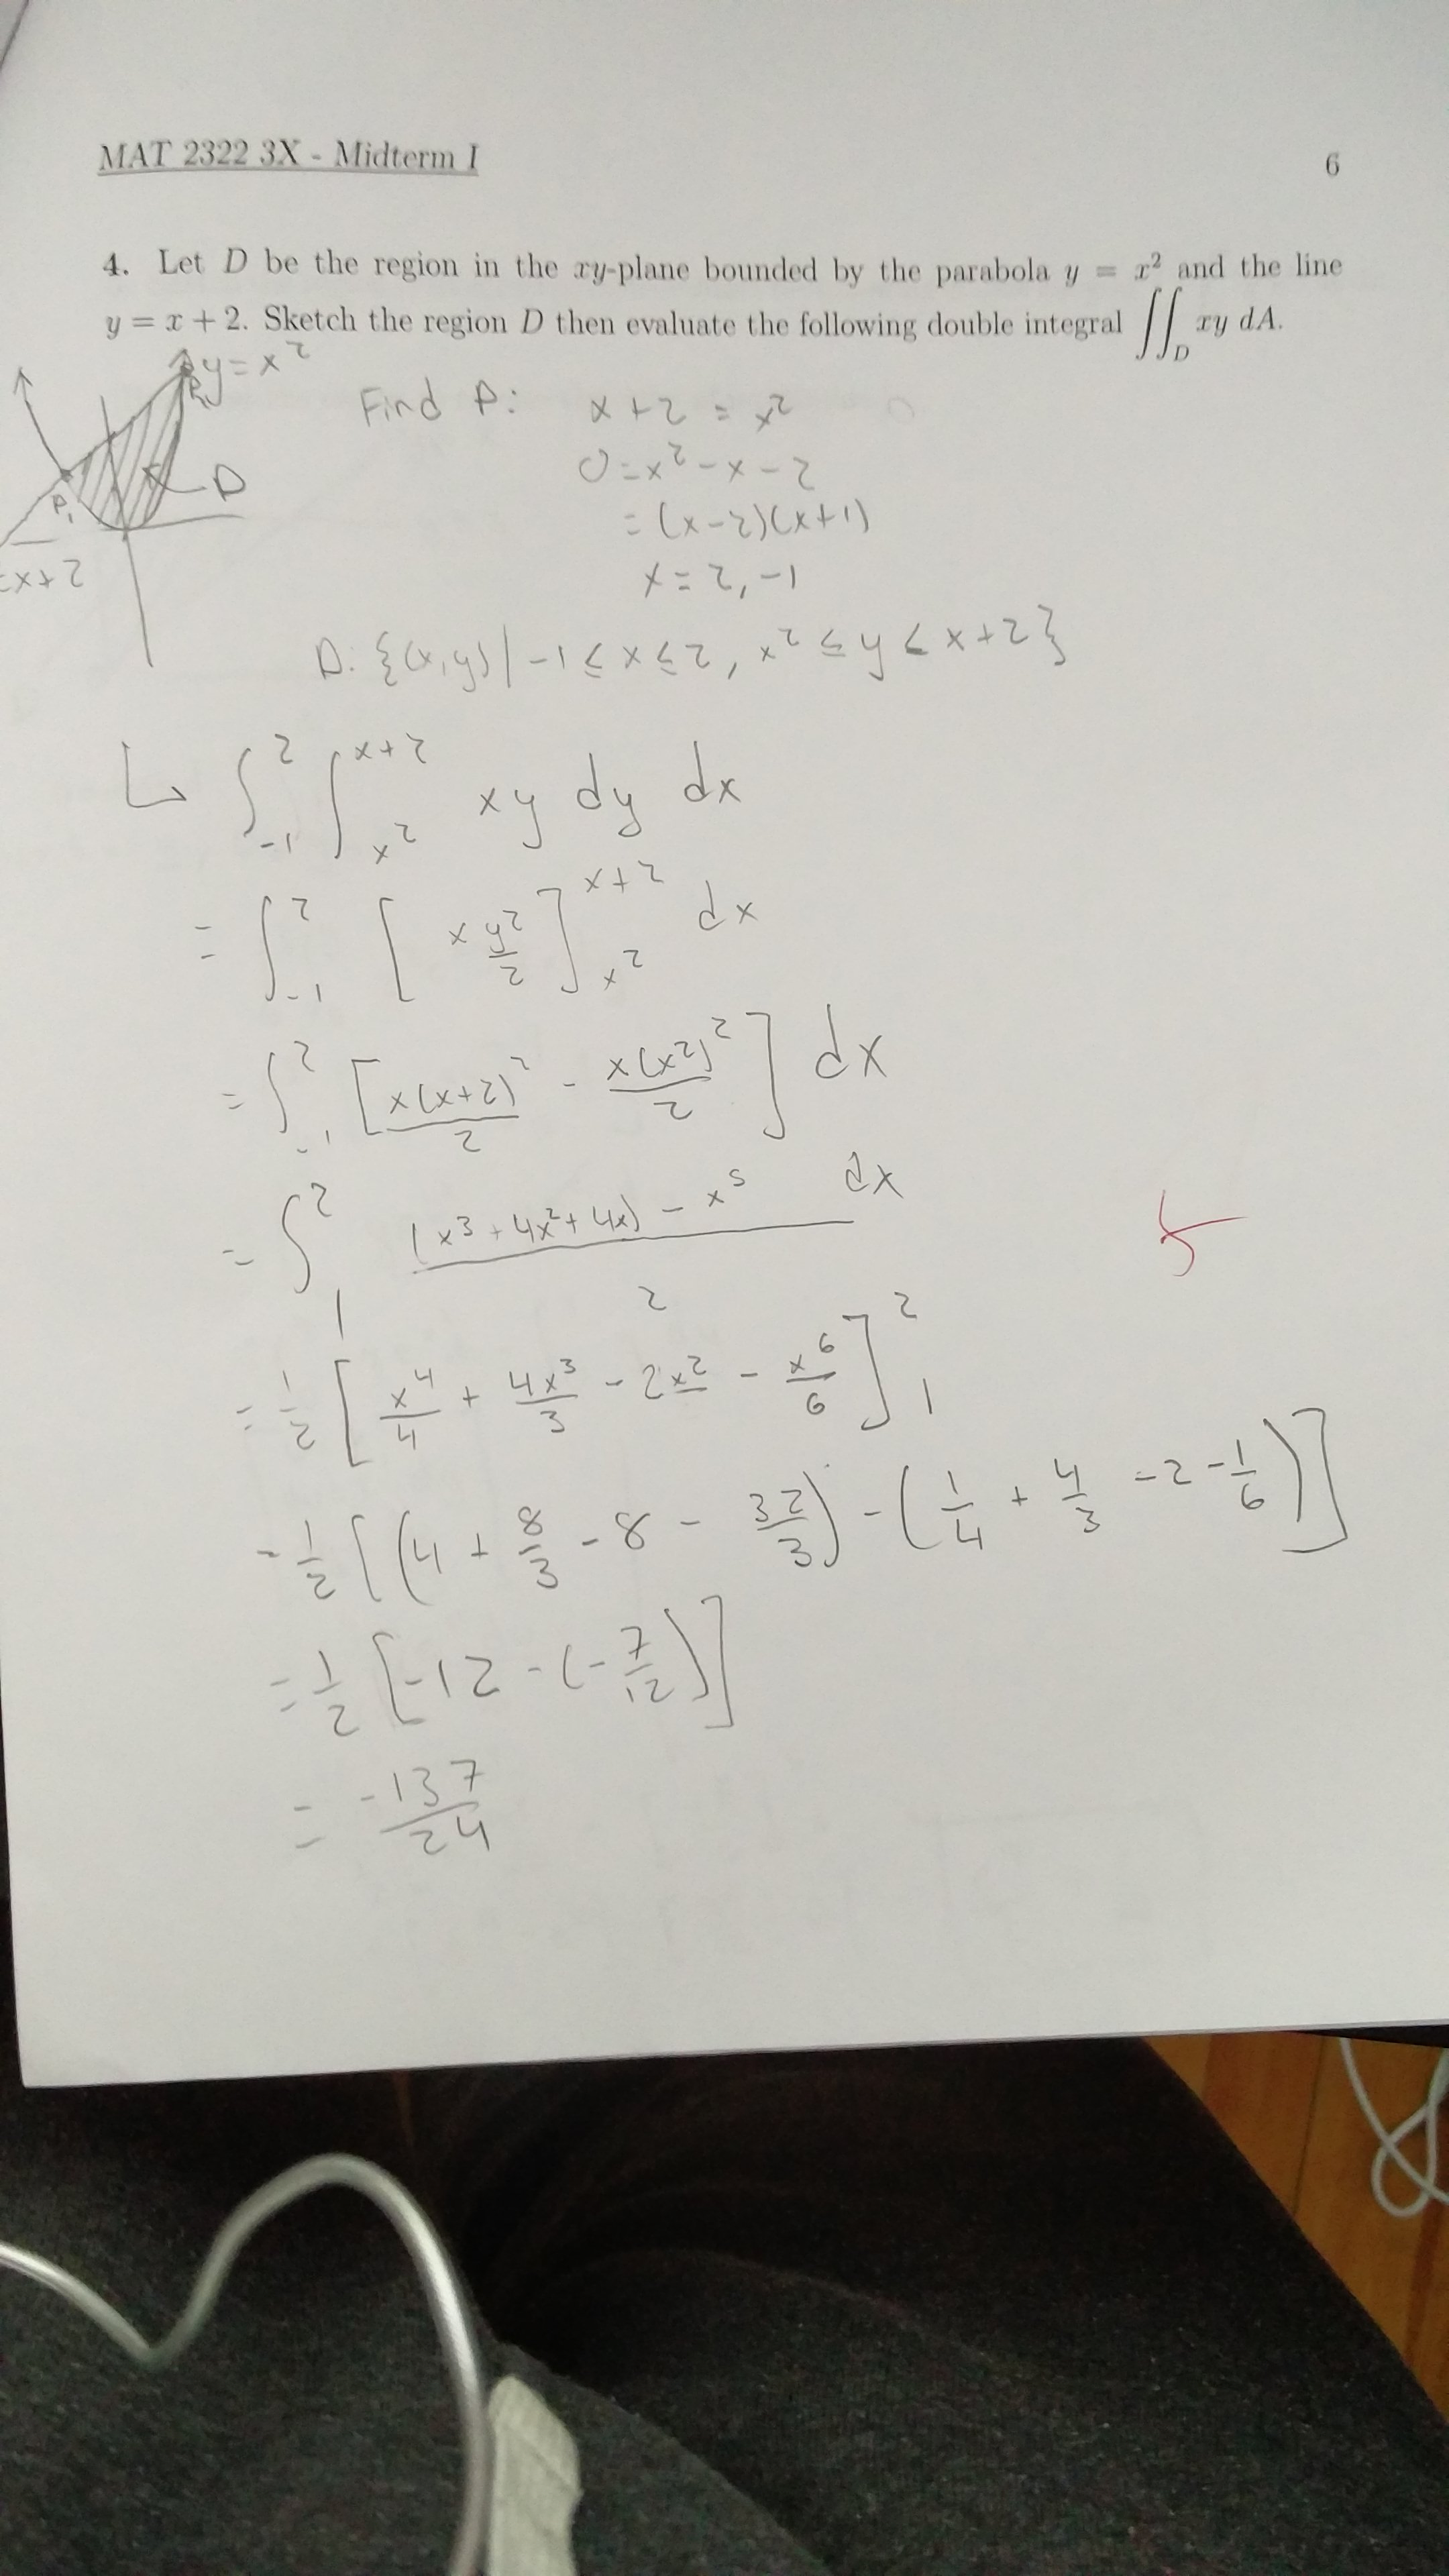 MAT 2322 3X - Midterm I
6
4. Let D be the region in the xy-plane bounded by the parabola y = x² and the line
y = x + 2. Sketch the region D then evaluate the following double integral ∬_D xy dA.
y = x²
P₁
D
=x+2
Find P: x + 2 = x²
0 = x² - x - 2
= (x-2)(x+1)
x = 2, -1
D: {(x,y) | -1 ≤ x ≤ 2, x² ≤ y ≤ x+2}
↳ ∫_{-1}^{2} ∫_{x²}^{x+2} xy dy dx
= ∫_{-1}^{2} [x y²/2]_{x²}^{x+2} dx
= ∫_{-1}^{2} [x(x+2)²/2 - x(x²)²/2] dx
= ∫_{1}^{2} ((x³ + 4x² + 4x) - x⁵)/2 dx
= 1/2 [x⁴/4 + 4x³/3 - 2x² - x⁶/6]_{1}^{2}
= 1/2 [(4 + 8/3 - 8 - 32/3) - (1/4 + 4/3 - 2 - 1/6)]
= 1/2 [-12 - (-7/12)]
= -137/24
5